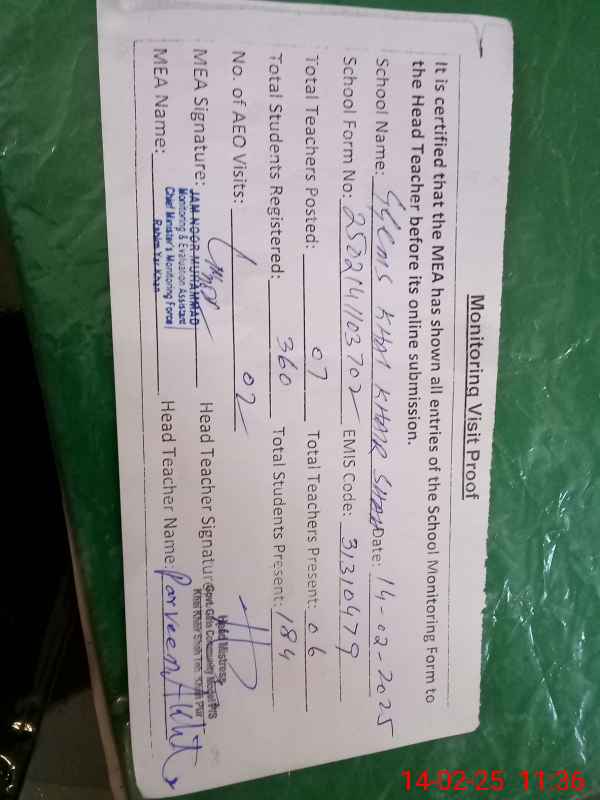 Monitoring Visit Proof
It is certified that the MEA has shown all entries of the School Monitoring Form to
the Head Teacher before its online submission.
School Name: GGCMS KHAI KHAIR SHAH Date: 14-02-2025
School Form No: 2502141103702 EMIS Code: 31310479
Total Teachers Posted: 07 Total Teachers Present: 06
Total Students Registered: 360 Total Students Present: 184
No. of AEO Visits: 02
MEA Signature: Head Teacher Signature
JAM NOOR MUHAMMAD
Monitoring & Evaluation Assistant
Chief Minister's Monitoring Force
Rahim Yar Khan
Head Mistress
Govt. Girls Community Model P/S
MEA Name: Head Teacher Name: Parveen Akhtar
14-02-25 11:36